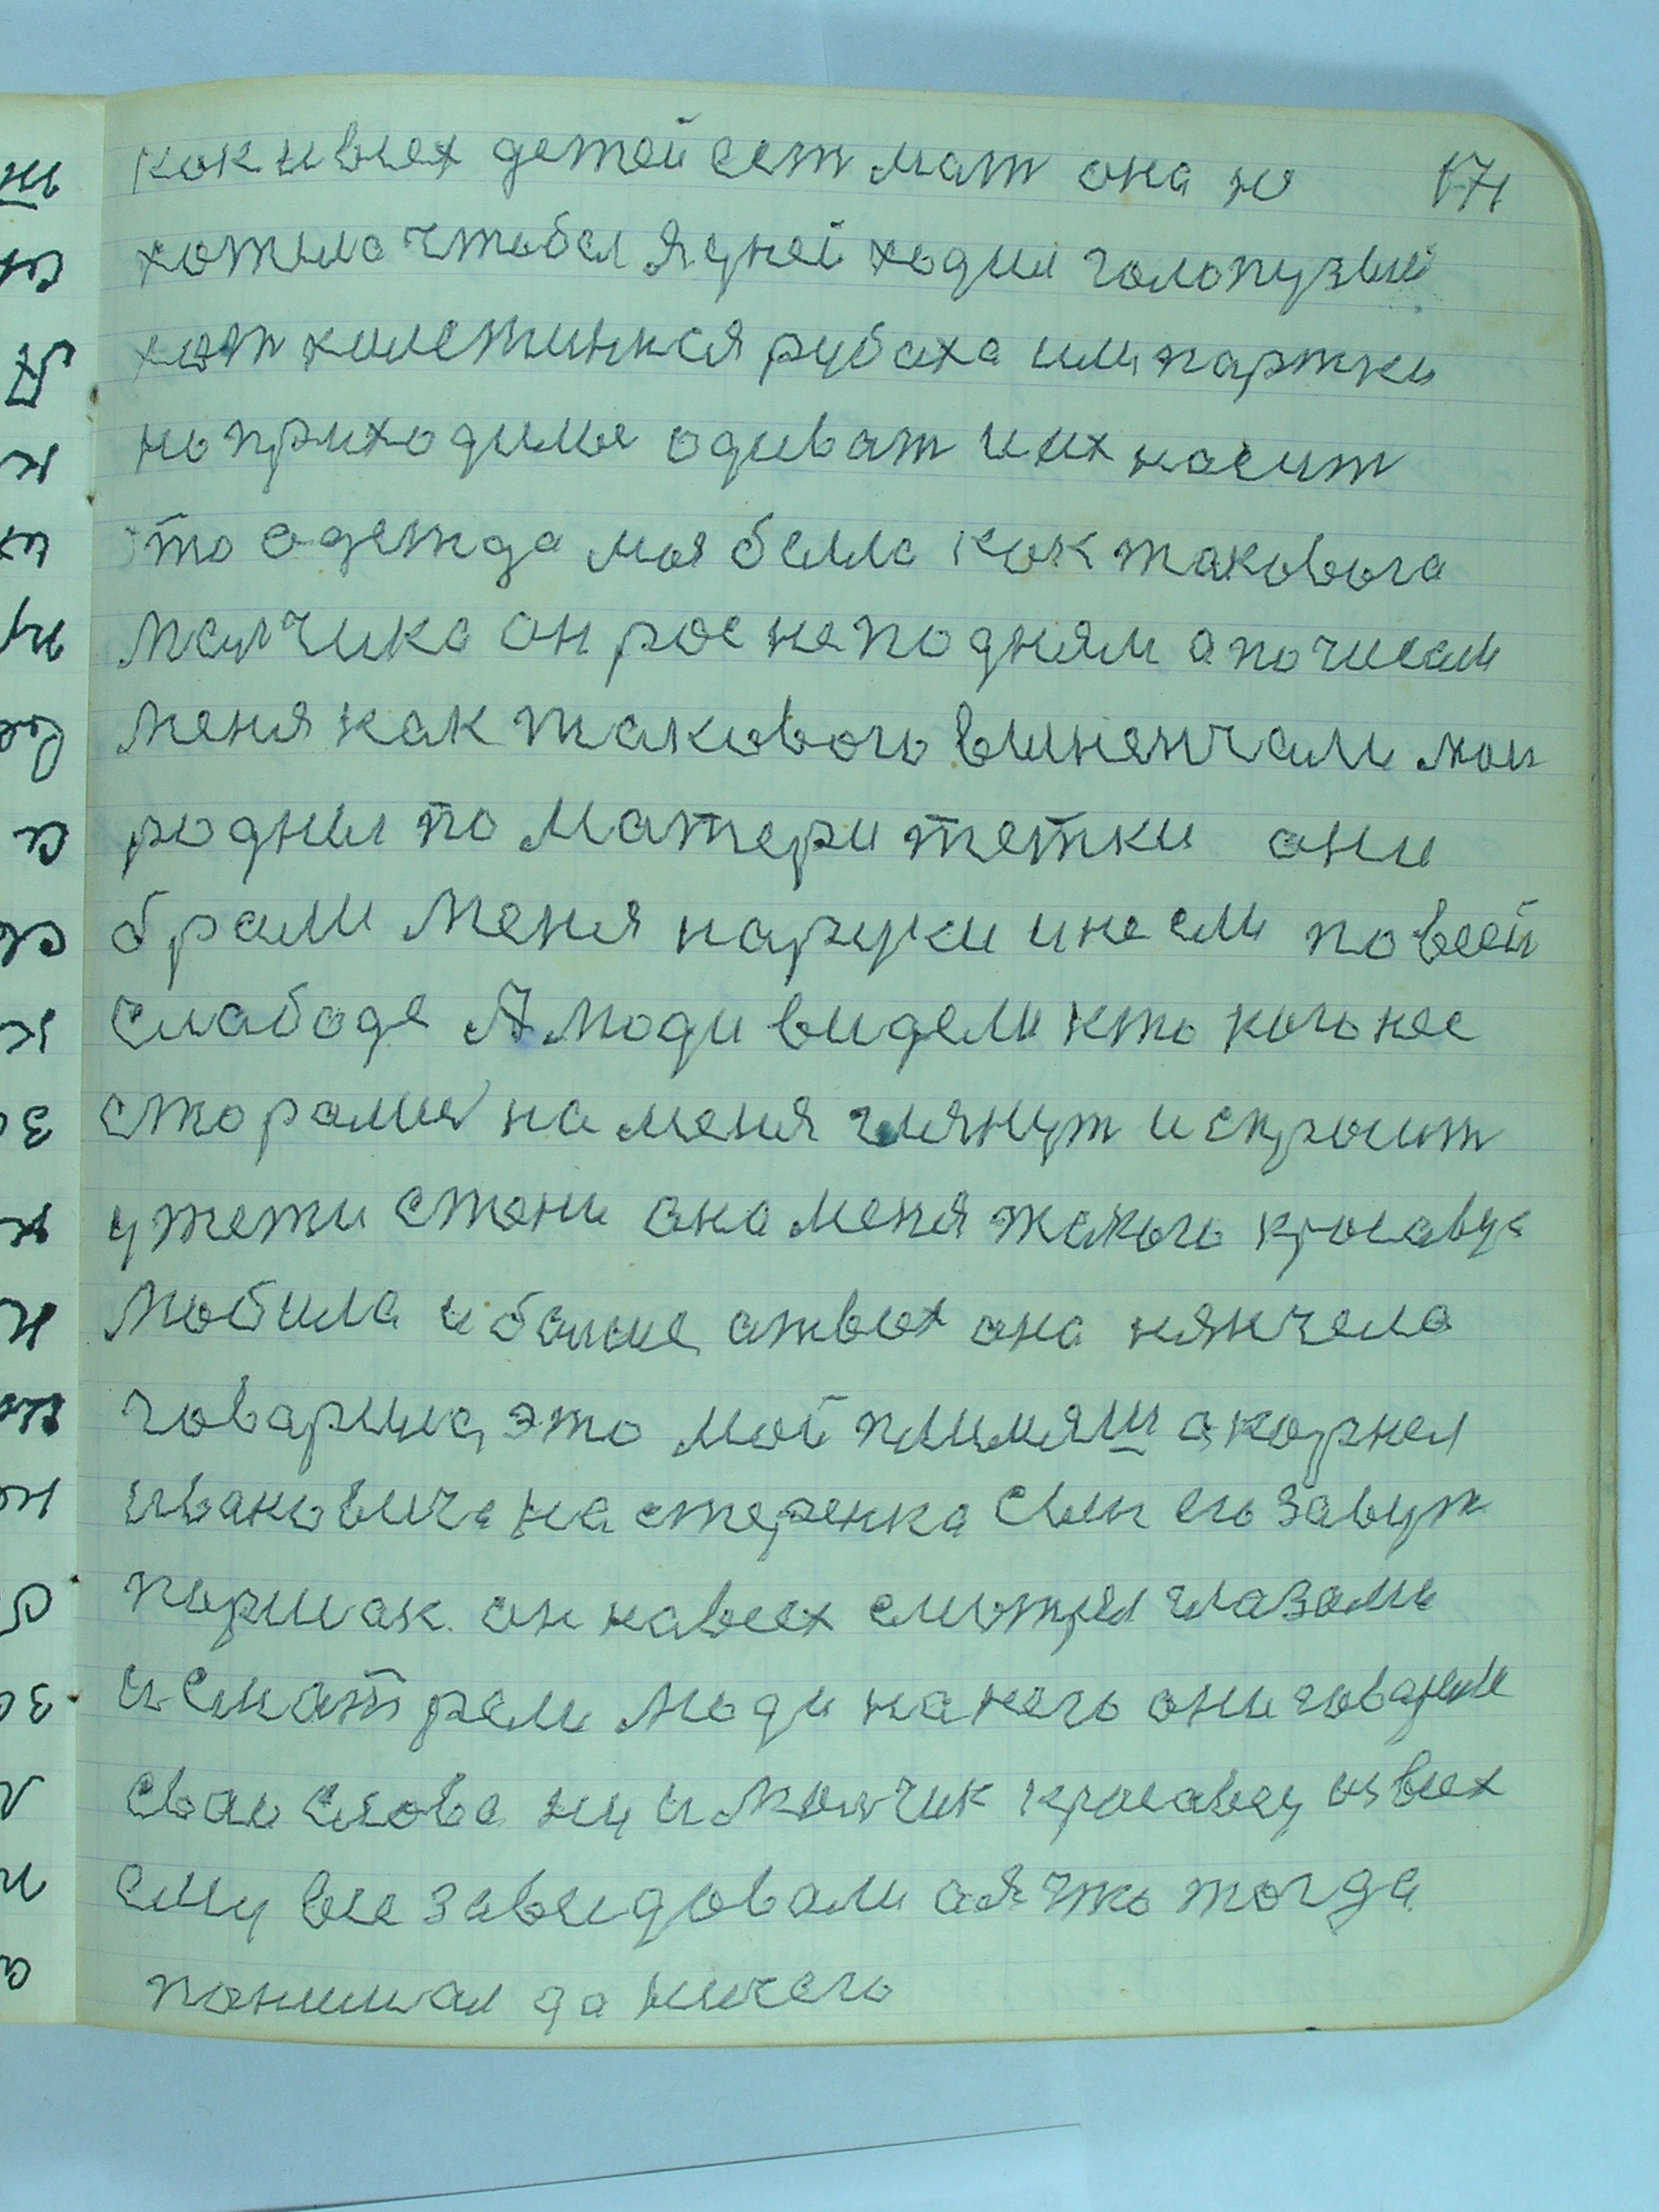 как и всех детей сет мат она не 171
хотела чтобы я уней ходил голопузый
хот холстинкся рубаха или партки
но приходилос одиват и их носит
то одежда моя была как таковога
малчика он рос не по дням а по чисам
меня как таковога вынянчали мои
родныи по матери тетки они
брали меня наруки инесли по всей
слабоде А люди видели кто кого нес
сторалис на меня глянут и спросит
у тети стени она меня такого красавца
любила и болше атвсех она нянчела
говарила, это мой плимяш а корнея
ивановича настеренка сын его завут
поршак. он навсех смотрел глазами
и сматрели люди нанего они говарили
сваи слова ну и малчик красавец извсех
ему все завидовали а я что тогда
понимал да ничего